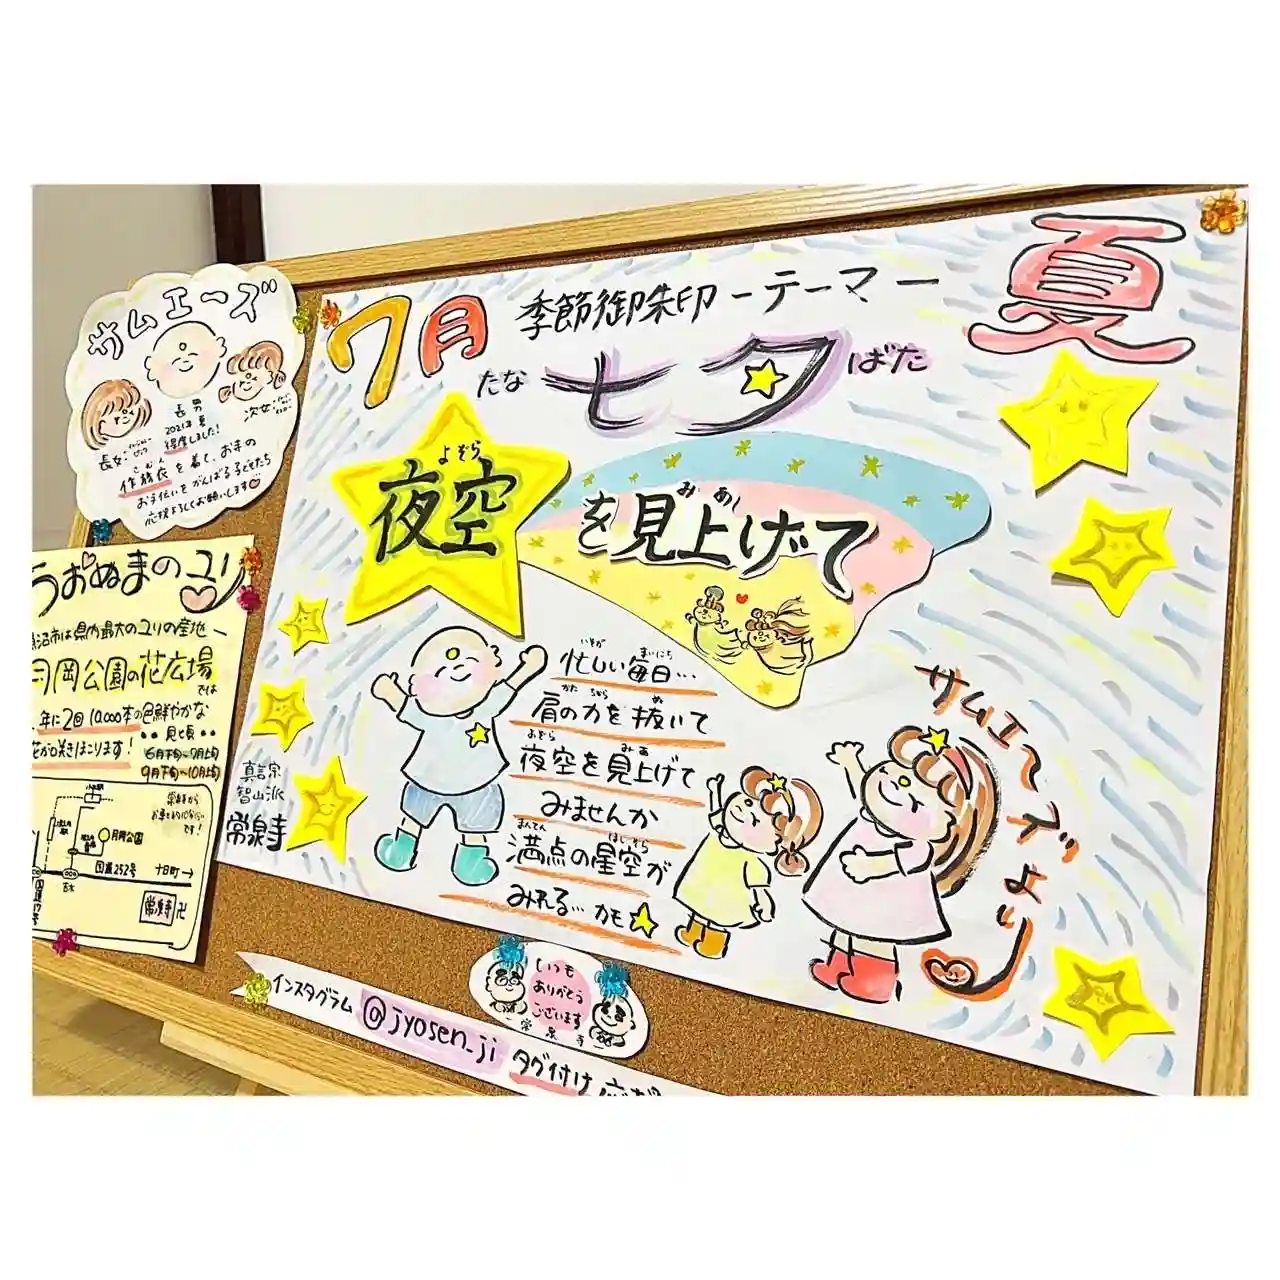 サムエーズ
長男
2021年夏
得度しました!
長女
次女
作務衣を着て、お寺の
お手伝いをがんばる子どもたち
応援よろしくお願いします♡
うおぬまのユリ
沼市は県内最大のユリの産地
月岡公園の花広場
では
年に2回10,000本の色鮮やかな
花が咲きほこります!
見ごろ
6月下旬~7月上旬
9月下旬~10月上旬
お車で約10分
です!
月岡公園
国道252号
十日町→
常泉寺 卍
7月
季節御朱印ーテーマー
夏
たな
七夕
ばた
よぞら
夜空
み あ
を見上げて
いそが まいにち
忙しい毎日…
かた ちから ぬ
肩の力を抜いて
よぞら みあ
夜空を見上げて
みませんか
まんてん ほしぞら
満点の星空が
みれる…かも
サムエーズより
真言宗
智山派
常泉寺
いつも
ありがとう
ございます
常泉寺
インスタグラム @jyosen_ji タグ付け